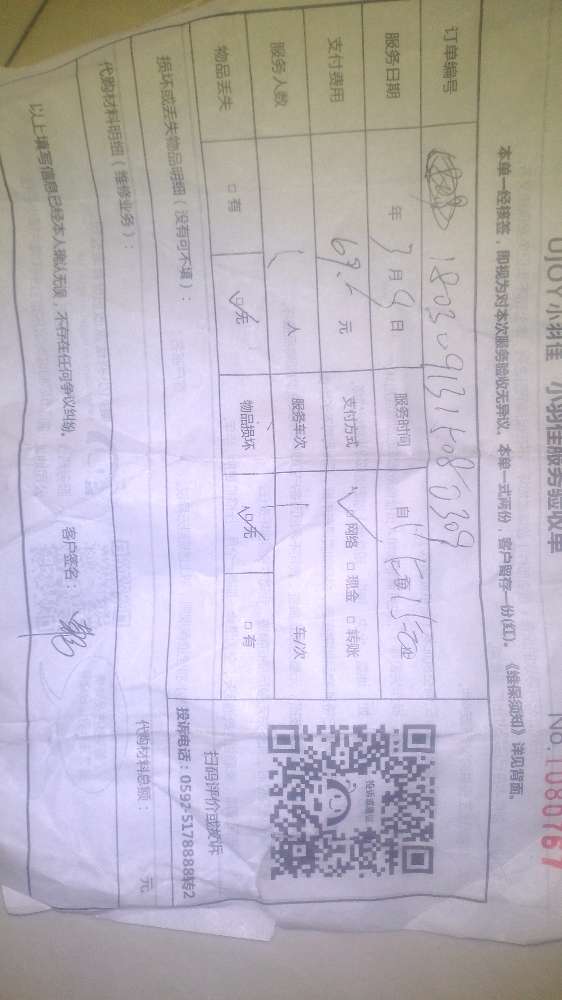 UJOY小羽佳 小羽佳服务验收单
No.1080767
本单一经接签，即视为对本次服务验收无异议。本单一式两份，客户留存一份(红)。《维保须知》详见背面。
订单编号 1803091315080309
服务日期 年 3 月 9 日 服务时间 自
支付费用 69.5 元 支付方式 ☑网络 □现金 □转账
服务人数 1 人 服务车次 1 车/次
物品丢失 □有 ☑无 物品损坏 ☑无 □有
损坏或丢失物品明细（没有可不填）：
扫码评价或投诉
投诉电话：0592-5178888转2
代购材料明细（维修业务）：
代购材料总额： 元
以上填写信息已经本人确认无误，不存在任何争议纠纷。 客户签名：